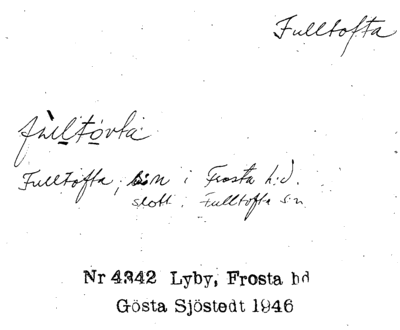 Fulltofta
fùltòvta
Fulltofta, sn i Frosta h:d.
slott i Fulltofta s:n
Nr 4342 Lyby, Frosta hd
Gösta Sjöstedt 1946